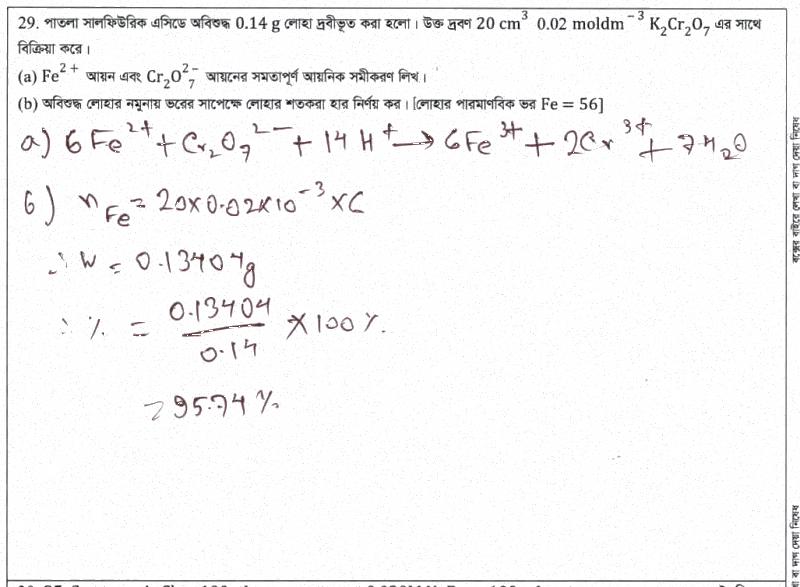 29. পাতলা সালফিউরিক এসিডে অবিশুদ্ধ 0.14 g লোহা দ্রবীভূত করা হলো। উক্ত দ্রবণ 20 cm³ 0.02 moldm⁻³ K₂Cr₂O₇ এর সাথে
বিক্রিয়া করে।
(a) Fe²⁺ আয়ন এবং Cr₂O₇²⁻ আয়নের সমতাপূর্ণ আয়নিক সমীকরণ লিখ।
(b) অবিশুদ্ধ লোহার নমুনায় ভরের সাপেক্ষে লোহার শতকরা হার নির্ণয় কর। [লোহার পারমাণবিক ভর Fe = 56]
a) 6Fe²⁺ + Cr₂O₇²⁻ + 14H⁺ → 6Fe³⁺ + 2Cr³⁺ + 7H₂O
b) n_Fe = 20×0.02×10⁻³×6
∴ W = 0.13404g
∴ % = 0.13404/0.14 × 100%
= 95.74%
বক্সের বাইরে লেখা বা দাগ দেয়া নিষেধ
বা দাগ দেয়া নিষেধ